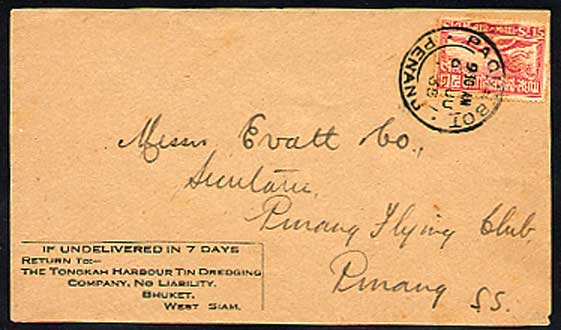 SIAM AIR-MAIL St.15
PENANG
PAQUEBOT
9 30 AM
JU
35
Messrs Evatt Co.,
Secretaries,
Penang Flying Club,
Penang
S.S.
IF UNDELIVERED IN 7 DAYS
RETURN TO:—
THE TONGKAH HARBOUR TIN DREDGING
COMPANY, NO LIABILITY.
BHUKET,
WEST SIAM.